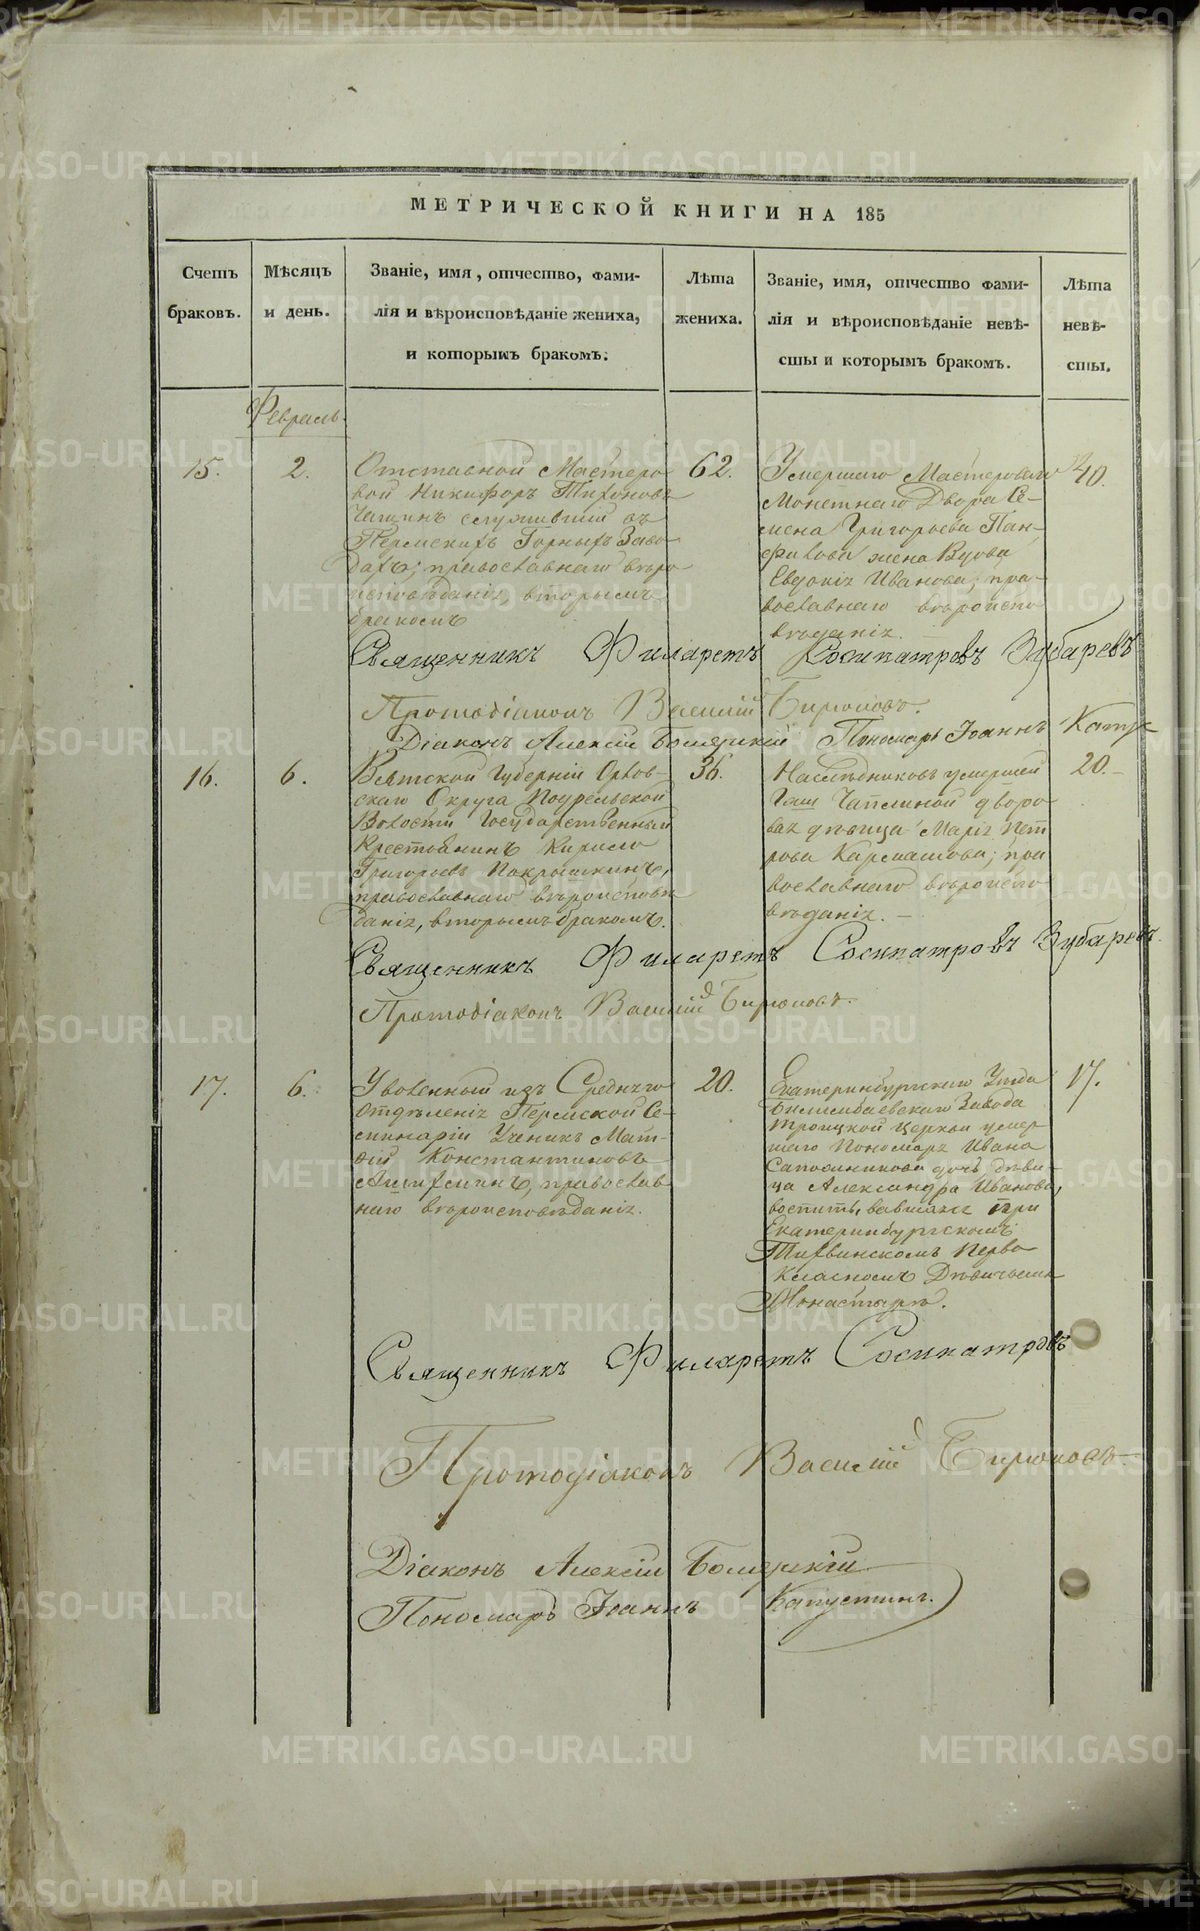 МЕТРИЧЕСКОЙ КНИГИ НА 185
Счетъ браковъ.
Мѣсяцъ и день.
Званіе, имя, отчество, фами-
лія и вѣроисповѣданіе жениха,
и которымъ бракомъ.
Лѣта
жениха.
Званіе, имя, отчество фами-
лія и вѣроисповѣданіе невѣ-
сты и которымъ бракомъ.
Лѣта
невѣ-
сты.
Февраль.
15.
2.
Отставной Мастеро-
вой Никифоръ Тихоновъ
служившій въ
Пермскихъ Горныхъ Заво-
дахъ; православнаго вѣро-
исповѣданія, вторымъ
бракомъ
62.
Умершаго Мастероваго
Монетнаго Двора Се-
мена Григорьева Пан-
филова жена Вдова
Евдокія Иванова; пра-
вославнаго вѣроиспо-
вѣданія.
40.
Священникъ Филаретъ Сосипатровъ Зубаревъ
Протодіаконъ Василій Бирюковъ.
Діаконъ Алексій Пономарь Іоаннъ
16.
6.
Вятской Губерніи Орлов-
скаго Округа
Волости Государственный
Крестьянинъ Кирило
Григорьевъ Покрышкинъ,
православнаго вѣроисповѣ-
данія, вторымъ бракомъ.
36.
Наслѣдниковъ умершей
Гжи Чаплиной дворо-
вая дѣвица Марія Пет
рова Кармашова; пра
вославнаго вѣроиспо-
вѣданія.
20.
Священникъ Филаретъ Сосипатровъ Зубаревъ
Протодіаконъ Василій Бирюковъ.
17.
6.
Уволенный изъ Средняго
Отдѣленія Пермской Се-
минаріи Ученикъ Мат-
ѳій Константиновъ
православ
наго вѣроисповѣданія.
20.
Екатеринбургскаго Уѣзда
Билимбаевскаго Завода
Троицкой церкви умер-
шаго Пономаря Ивана
Сапожникова дочь дѣви-
ца Александра Иванова,
воспитывавшаяся при
Екатеринбургскомъ
Тихвинскомъ Перво
класномъ Дѣвичьемъ
Монастырѣ.
17.
Священникъ Филаретъ Сосипатровъ
Протодіаконъ Василій Бирюковъ
Діаконъ Алексій
Пономарь Іоаннъ Капустинъ.
METRIKI.GASO-URAL.RU